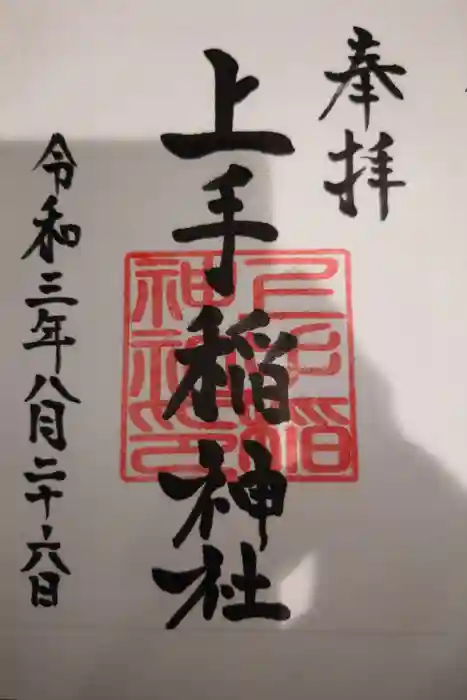 奉拝
上手稲神社
令和三年八月二十六日